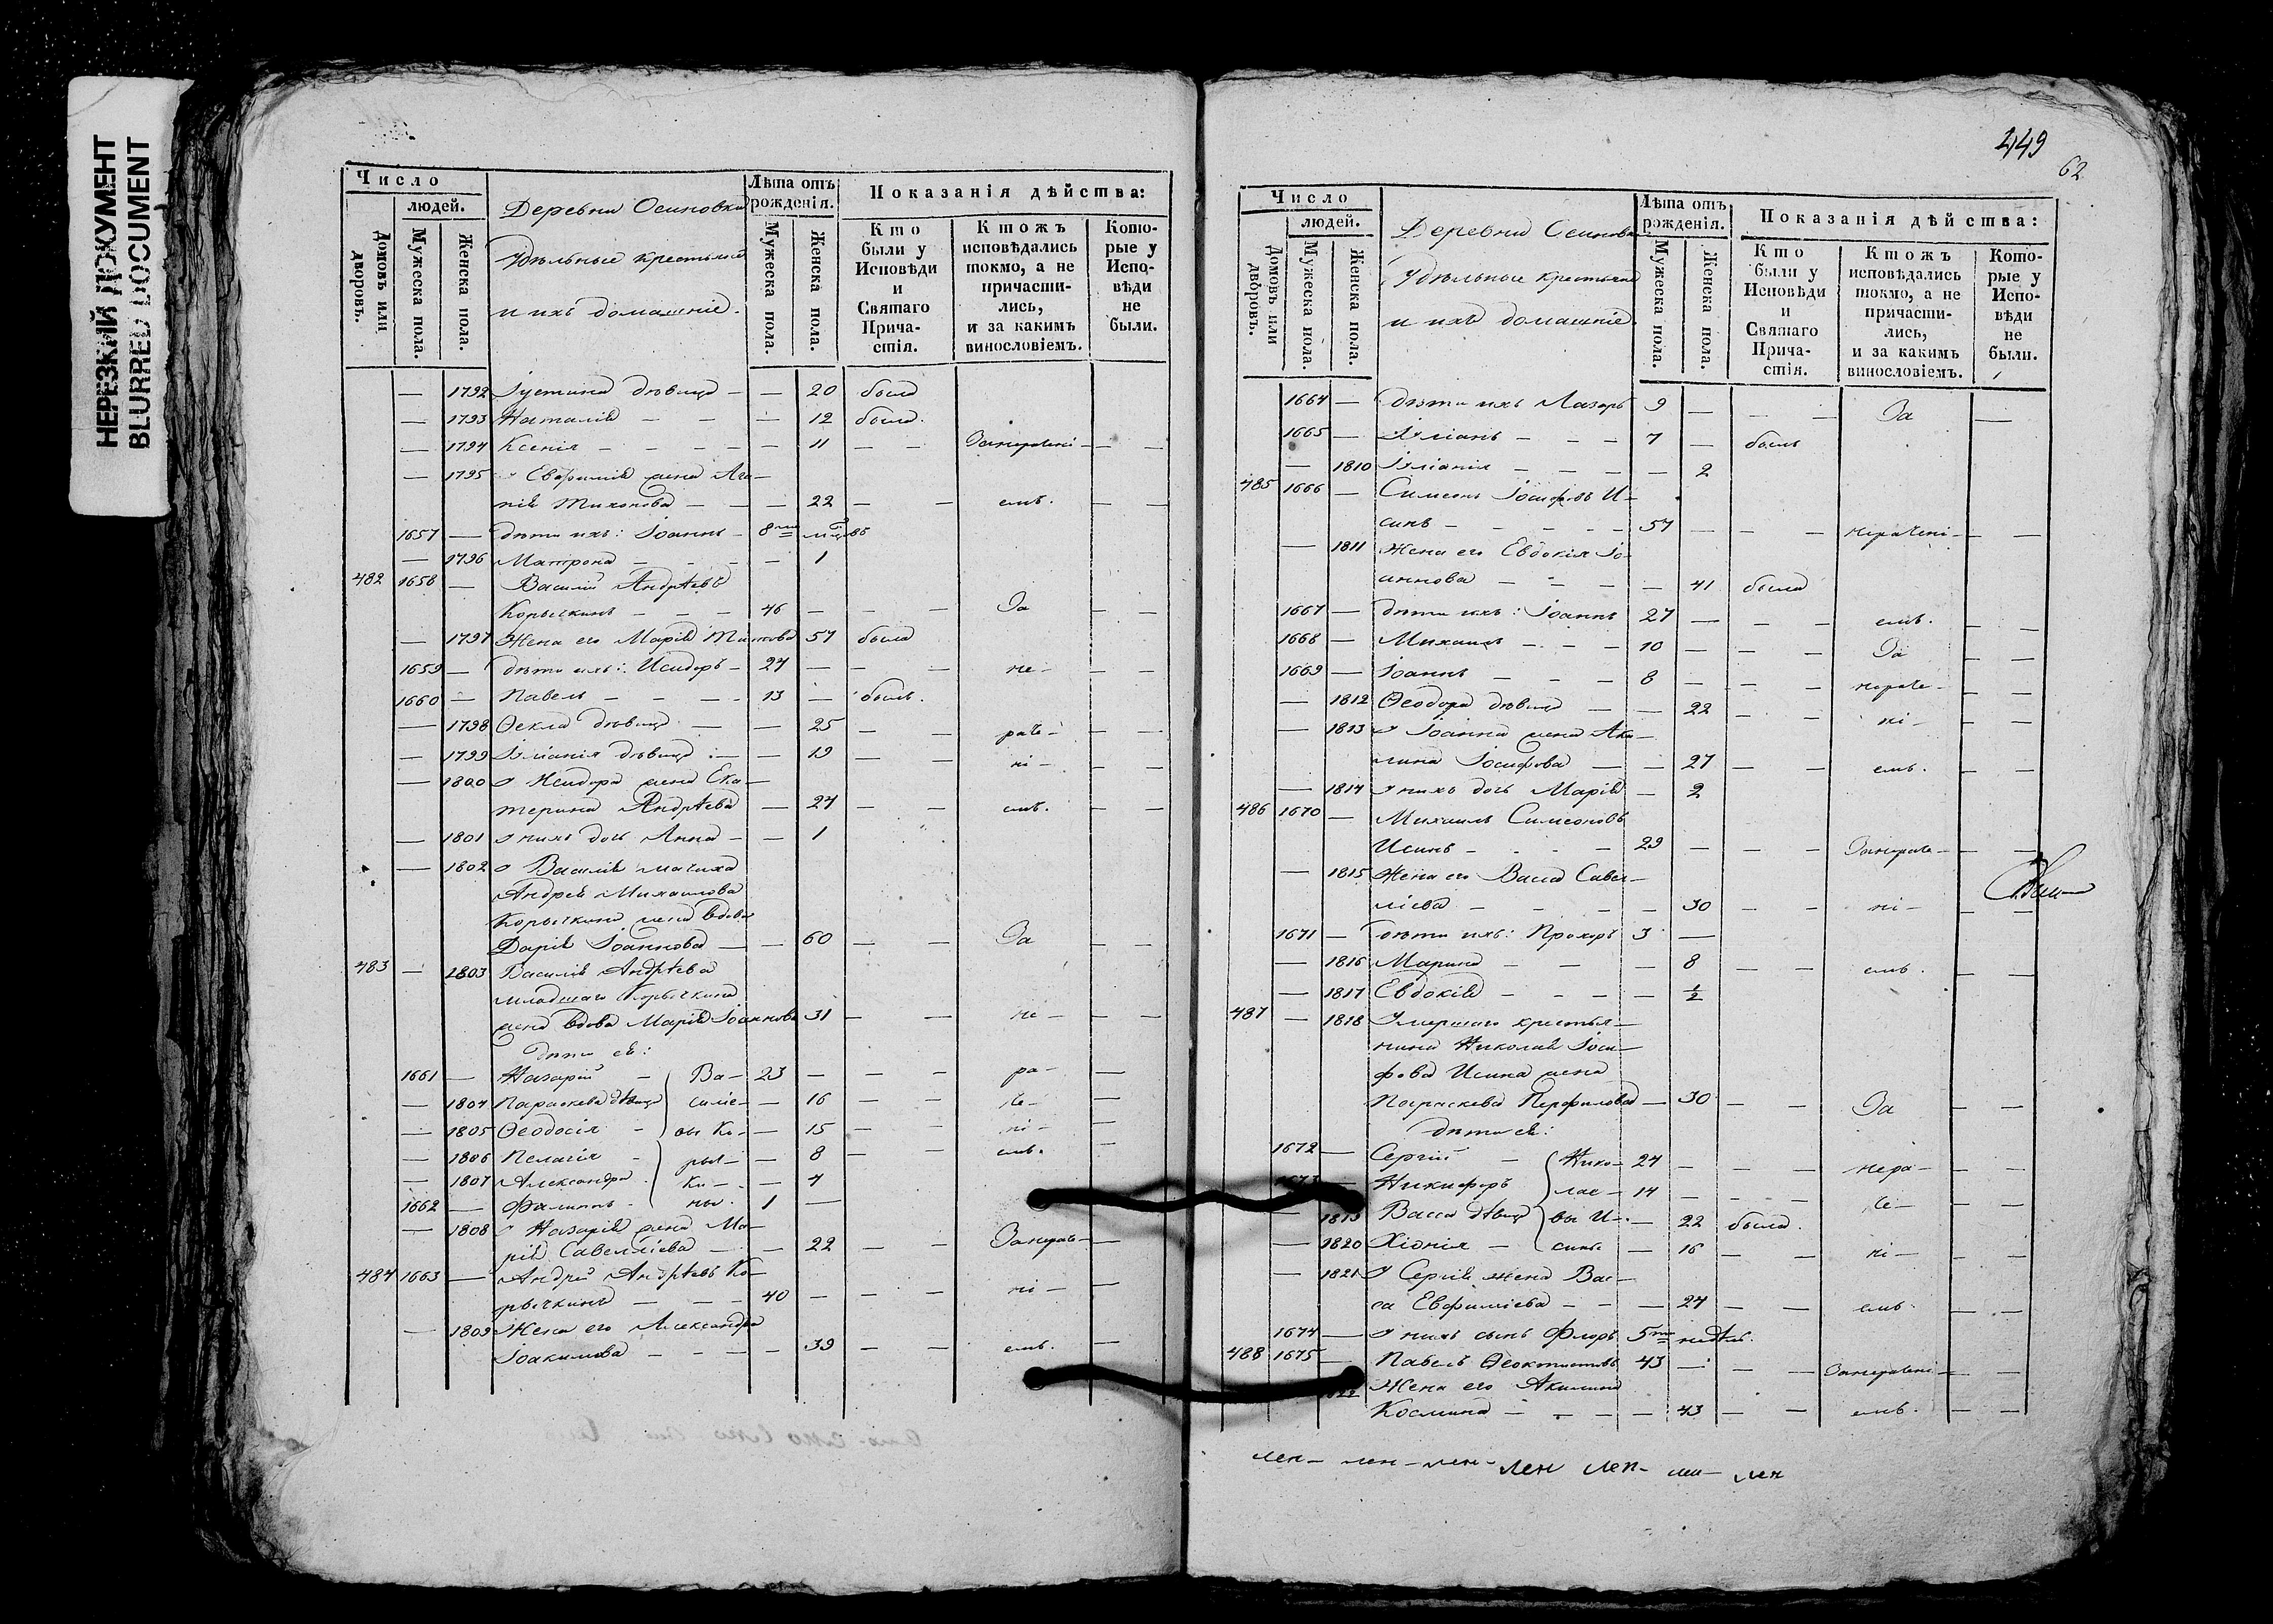 НЕРЕЗКИЙ ДОКУМЕНТ
BLURRED DOCUMENT
Число
людей.
Домовъ или дворовъ.
Мужеска пола.
Женска пола.
Деревни Осиновки
Удѣльные крестьяне
и ихъ домашніе.
Лѣта отъ рожденія.
Мужеска пола.
Женска пола.
Показанія дѣйства:
Кто были у Исповѣди и Святаго Прича-стія.
Ктожъ исповѣдались токмо, а не причасти-лись, и за какимъ винословіемъ.
Кото-рые у Испо-вѣди не были.
— 1792 Іустина дѣвица — — 20 была
— 1793 Наталія — — — 12 была.
— 1794 Ксенія — — — — 11 — — Занерачені — — —
— 1795 У Евфимія жена Ага—
пія Тихонова — — — 22 — — емъ. — —
1657 — дѣти ихъ: Іоаннъ — 8ми м-цовъ
— 1796 Матрона — — — — 1
482 1658 — Василій Андрѣевъ
Корычкинъ — — — 46 — — — За — —
— 1797 Жена его Марія Титова 57 была
1659 — дѣти ихъ: Исидоръ — 24 — — — не — — —
1660 — Павелъ — — — 13 — былъ.
— 1798 Ѳекла дѣвица — — 25 — — раче — — —
— 1799 Іуліанія дѣвица — — 19 — — ні — — —
— 1800 У Исидора жена Ека—
терина Андрѣева — 24 — — емъ. — —
— 1801 У нихъ дочь Анна — — 1
— 1802 У Василія мачиха
Андрея Михаилова
Корычкина жена вдова
Дарія Іоаннова — — 60 — — За — —
483 — 1803 Василія Андрѣева
младшаго Корычкина
жена вдова Марія Іоаннова 31 — — не — — —
дѣти ея:
1661 — Назарій — Ва— 23 — — — ра — —
— 1804 Параскева дѣвица силіе— — 16 — — че — —
— 1805 Ѳеодосія — вы Ко— — 15 — — ні — —
— 1806 Пелагія — рыч— — 8 — — емъ. —
— 1807 Александра ки— — 4
1662 — Филиппъ — ны. 1 —
— 1808 У Назарія жена Ма—
рія Савелліева — — 22 — — Занераче— —
484 1663 — Андрей Андрѣевъ Ко—
рычкинъ — — — 40 — — — ні — —
— 1809 Жена его Александра
Іоакимова — — — — 39 — — емъ. —
449
62
Число
людей.
Домовъ или дворовъ.
Мужеска пола.
Женска пола.
Деревни Осиновки
Удѣльные крестьяне
и ихъ домашніе.
Лѣта отъ рожденія.
Мужеска пола.
Женска пола.
Показанія дѣйства:
Кто были у Исповѣди и Святаго Прича-стія.
Ктожъ исповѣдались токмо, а не причасти-лись, и за какимъ винословіемъ.
Кото-рые у Испо-вѣди не были.
1664 — дѣти ихъ Лазарь 9 — — — За —
1665 — Іуліанъ — — — 7 — былъ
— 1810 Іуліанія — — — — 2
485 1666 — Симеонъ Іосифовъ И—
синъ — — — — 57 — — — нерачені—
— 1811 Жена его Евдокія Іо—
аннова — — — — 41 была
1667 — дѣти ихъ: Іоаннъ 27 — — — емъ. — —
1668 — Михаилъ — — — 10 — — — За — —
1669 — Іоаннъ — — — 8 — — — нераче— — —
— 1812 Ѳеодора дѣвица — — 22 — — ні — — —
— 1813 У Іоанна жена Аки—
лина Іосифова — — 27 — — емъ. — —
— 1814 У нихъ дочь Марія — 2
486 1670 — Михаилъ Симеоновъ
Исинъ — — — — 29 — — — Занераче— — —
— 1815 Жена его Васса Савел—
ліева — — — — 30 — — ні — — —
1671 — дѣти ихъ: Прохоръ 3 —
— 1816 Марина — — — 8 — — емъ. — —
— 1817 Евдокія — — — — ½
487 — 1818 Умершаго крестья—
нина Николая Іоси—
фова Исина жена
Параскева Перфилова — 30 — — За — —
дѣти ея:
1672 — Сергій — Нико— 24 — — — нера— — —
1673 — Никифоръ лае— 14 — — — че —
— 1819 Васса дѣвица вы И— — 22 была.
— 1820 Хіонія — сины — 16 — — ні — —
— 1821 У Сергія жена Вас—
са Евфиміева — — — 24 — — емъ. — —
1674 — У нихъ сынъ Флоръ 5ти недѣль.
488 1675 — Павелъ Ѳеоктистовъ 43 — — — Занерачені— —
1822 Жена его Акилина
Космина — — — — 43 — — емъ. — —
лен— лен— лен— лен лен— лен— лен